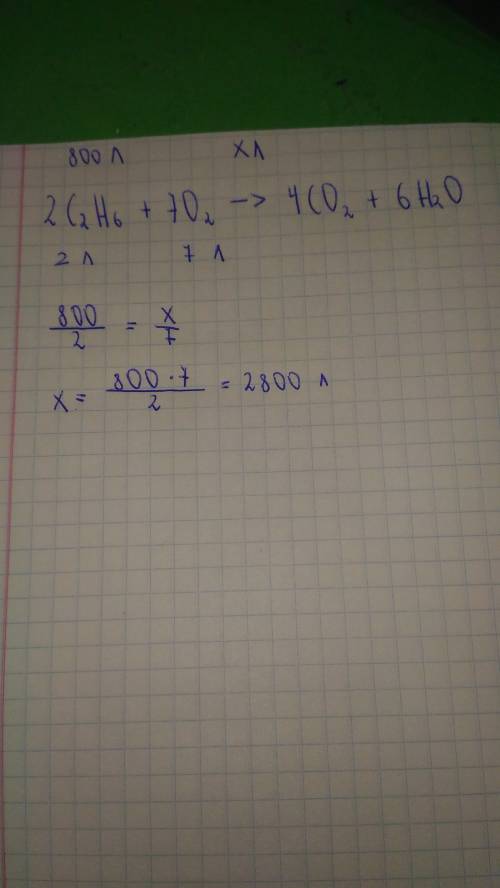 800 л х л
2C₂H₆ + 7O₂ -> 4CO₂ + 6H₂O
2 л 7 л
800/2 = x/7
x = 800·7/2 = 2800 л